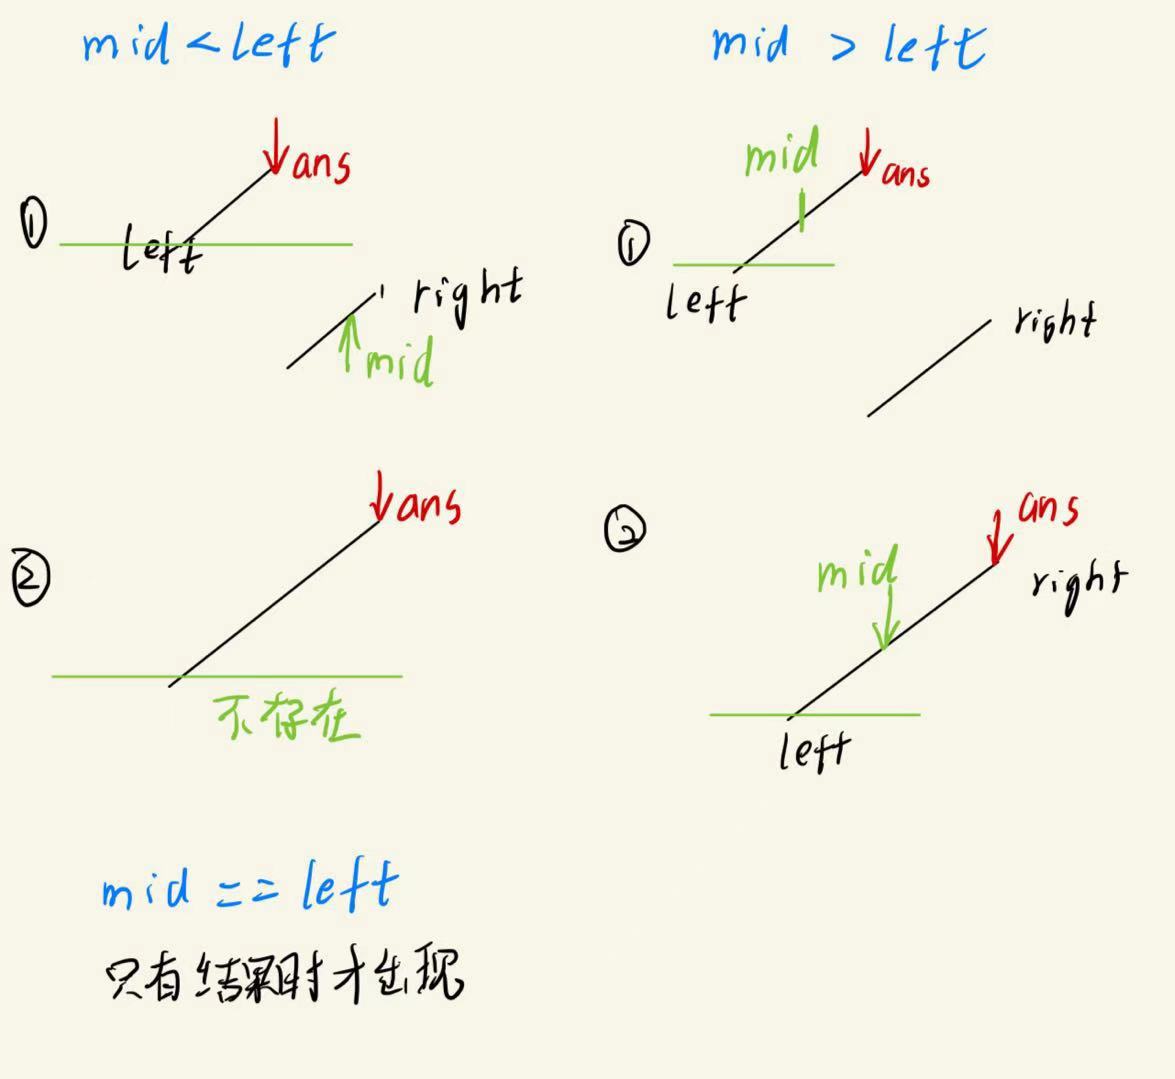 mid < left
①
ans
left
right
mid
②
ans
不存在
mid == left
只有结果时才出现
mid > left
①
mid
ans
left
right
②
ans
mid
right
left